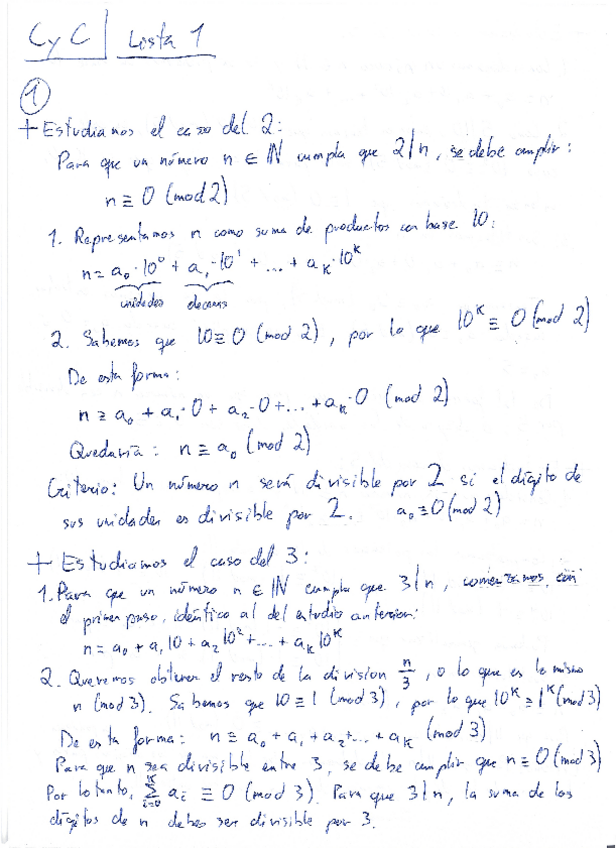 CyC | Lista 1
①
+ Estudiamos el caso del 2:
Para que un número n ∈ ℕ cumpla que 2|n, se debe cumplir:
n ≡ 0 (mod 2)
1. Representamos n como suma de productos con base 10:
n = a₀·10⁰ + a₁·10¹ + ... + aₖ·10ᴷ
unidades decenas
2. Sabemos que 10 ≡ 0 (mod 2), por lo que 10ᴷ ≡ 0 (mod 2)
De esta forma:
n ≡ a₀ + a₁·0 + a₂·0 + ... + aₖ·0 (mod 2)
Quedaría: n ≡ a₀ (mod 2)
Criterio: Un número n será divisible por 2 si el dígito de
sus unidades es divisible por 2. a₀ ≡ 0 (mod 2)
+ Estudiamos el caso del 3:
1. Para que un número n ∈ ℕ cumpla que 3|n, comenzamos con
el primer paso, idéntico al del estudio anterior:
n = a₀ + a₁10 + a₂10² + ... + aₖ10ᴷ
2. Queremos obtener el resto de la division n/3, o lo que es lo mismo
n (mod 3). Sabemos que 10 ≡ 1 (mod 3), por lo que 10ᴷ ≡ 1ᴷ (mod 3)
De esta forma: n ≡ a₀ + a₁ + a₂ + ... + aₖ (mod 3)
Para que n sea divisible entre 3, se debe cumplir que n ≡ 0 (mod 3)
Por lo tanto, ∑ᵢ₌₀ᴷ aᵢ ≡ 0 (mod 3). Para que 3|n, la suma de los
dígitos de n debes ser divisible por 3.